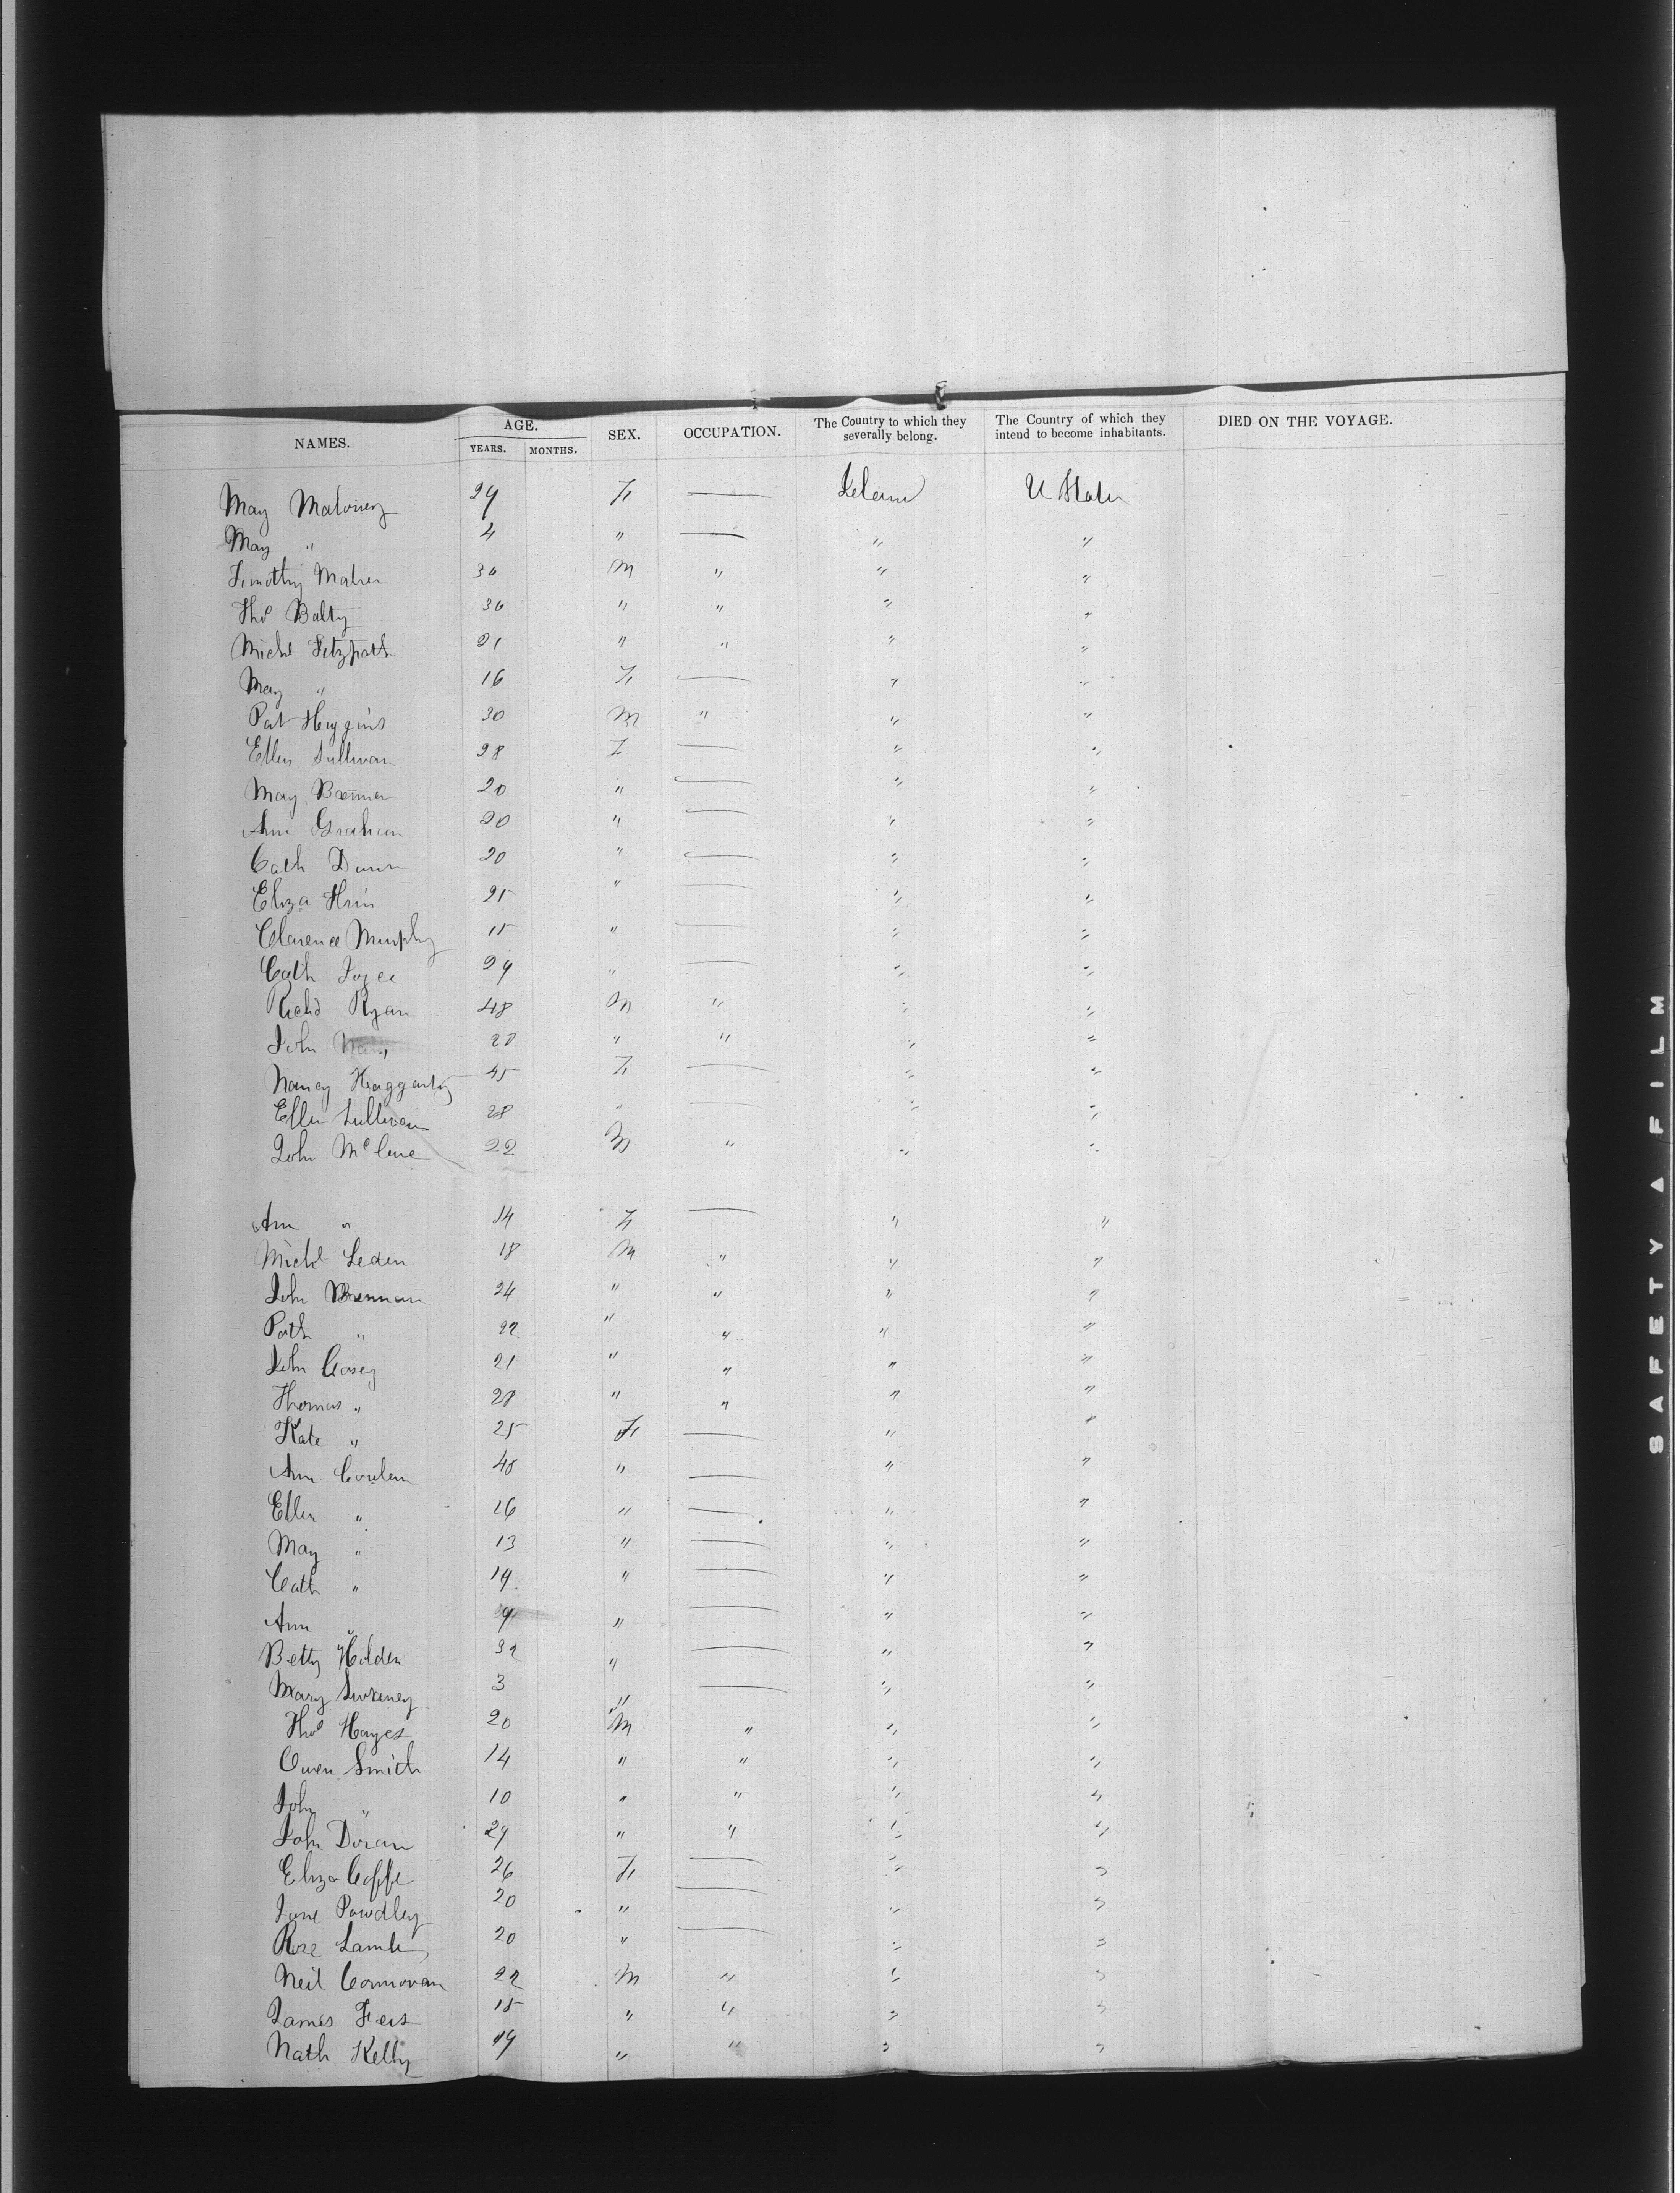 NAMES. AGE. YEARS. MONTHS. SEX. OCCUPATION. The Country to which they severally belong. The Country of which they intend to become inhabitants. DIED ON THE VOYAGE.
May Maloney 29 F —— U States
May " 4 " —— " "
Timothy Maher 30 M " " "
Thos Balty 36 " " " "
Michl Fitzpath 21 " " " "
May " 16 F —— " "
Pat Higgins 30 M " " "
Ellen Sullivan 28 F —— " "
May Brennan 20 " —— " "
Ann Graham 20 " —— " "
Cath Dunn 20 " —— " "
Eliza 25 " —— " "
Clarence Murphy 15 " —— " "
Cath Joyce 29 " —— " "
Richd Ryan 48 M " " "
John 20 " " " "
Nancy Haggarty 45 F —— " "
Ellen Sullivan 28 " —— " "
John McCune 22 M " " "
Ann " 14 F —— " "
Michl Leden 18 M " " "
John Brennan 24 " " " "
Path " 22 " " " "
John Casey 21 " " " "
Thomas " 28 " " " "
Kate " 25 F —— " "
Ann Conlen 40 " —— " "
Ellen " 16 " —— " "
May " 13 " —— " "
Cath " 19 " —— " "
Ann " 9 " —— " "
Betty Holden 32 " —— " "
Mary Sweeney 3 " —— " "
Thos Hayes 20 M " " "
Owen Smith 14 " " " "
John " 10 " " " "
John Doran 29 " " " "
Eliza Coffe 26 F —— " "
Jane Powdley 20 " —— " "
Rose Lamb 20 " —— " "
Neil Connovan 22 M " " "
James Feis 18 " " " "
Nath Kelly 19 " " " "
SAFETY ▲ FILM